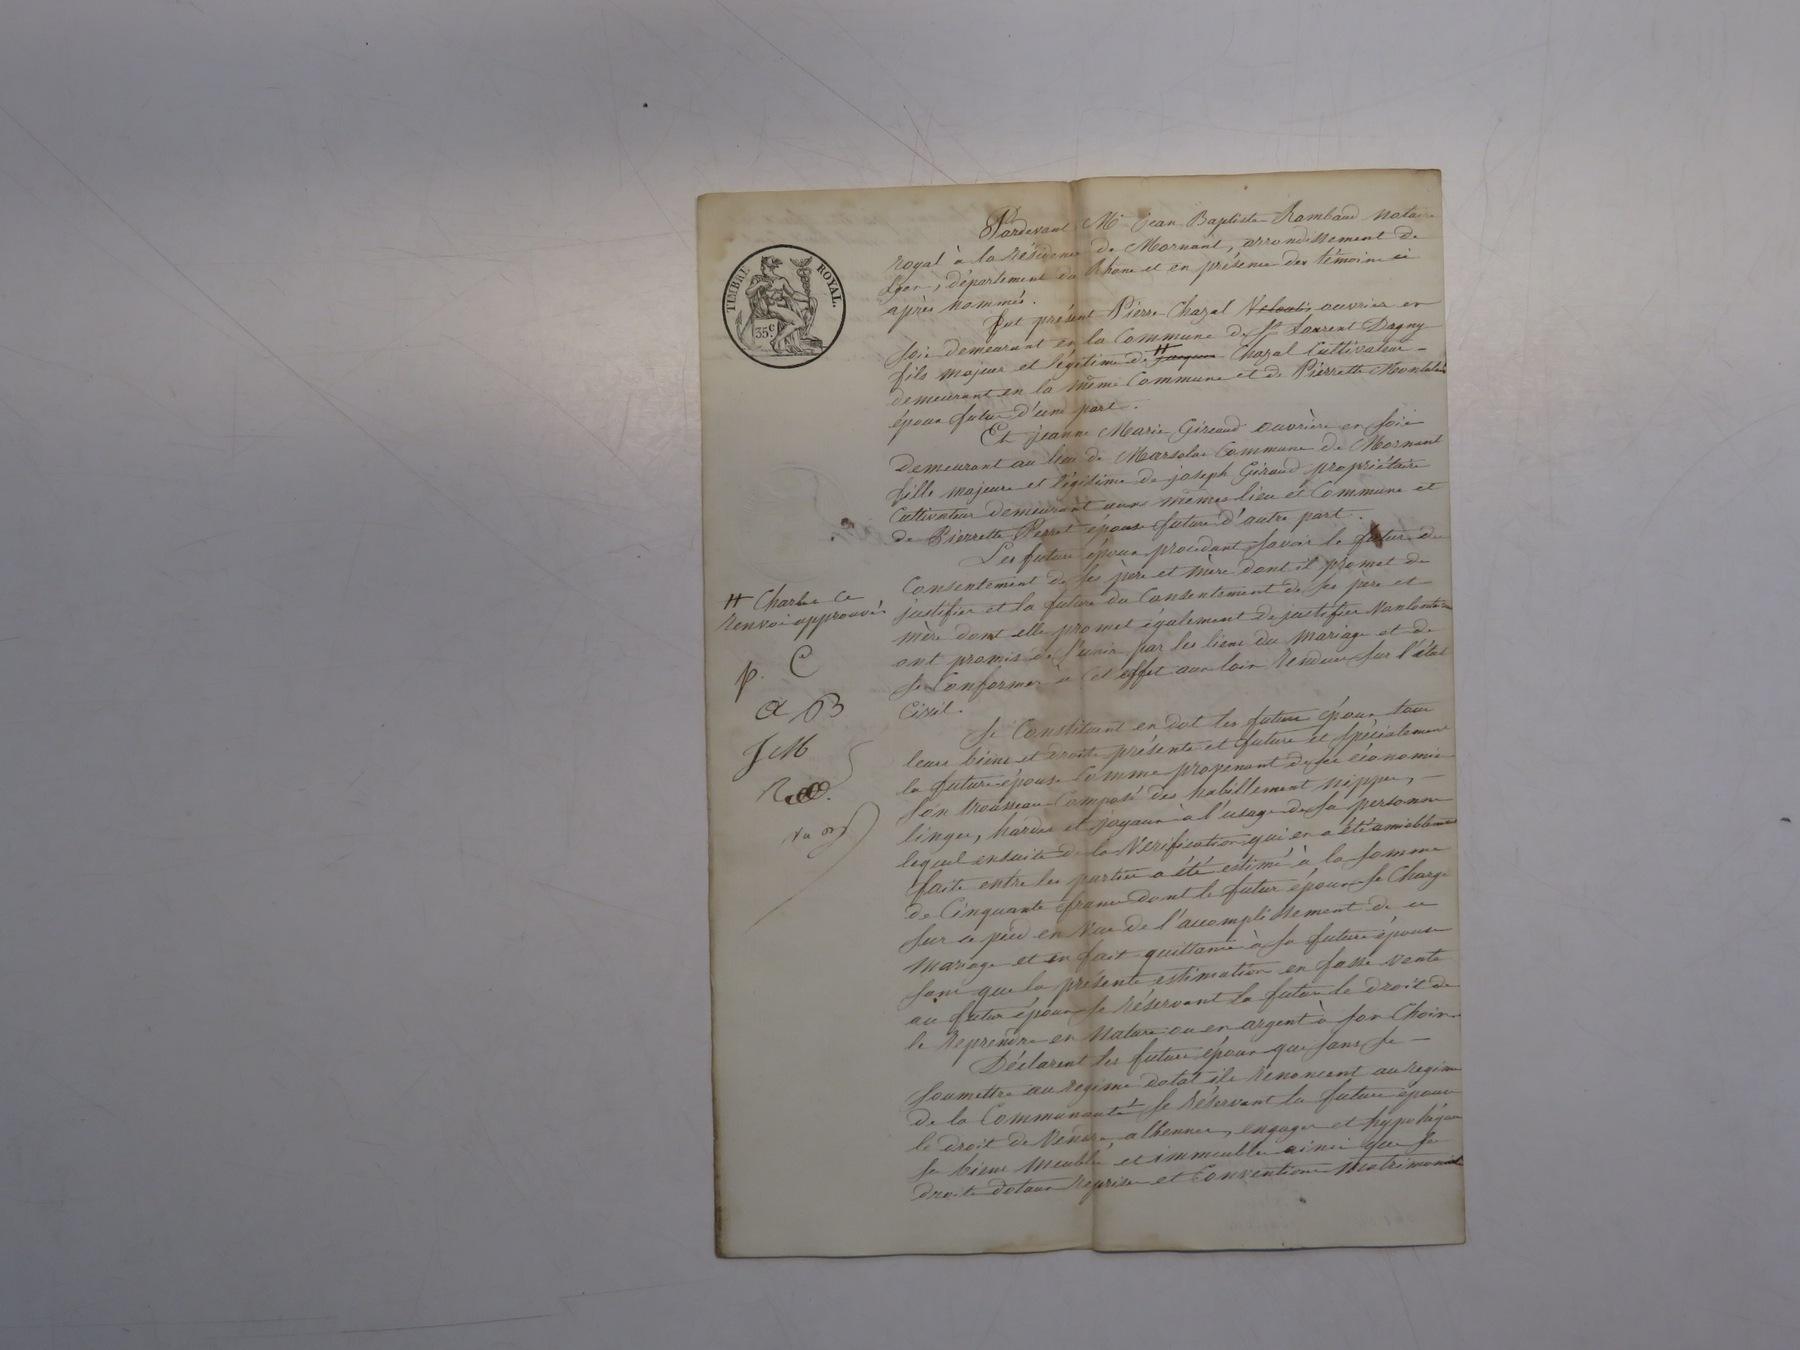 TIMBRE ROYAL.
35c.
Pardevant Me Jean Baptiste Rambaud notaire
royal à la résidence de Mornant, arrondissement de
Lyon, département du Rhône et en présence des témoins ci
après nommés.
fut présent Pierre Chazal ouvrier en
soie demeurant en la Commune de St Laurent Dagny
fils majeur et légitime de # Jacques Chazal Cultivateur
demeurant en la même Commune et de Pierrette
époux futur d'une part.
Et jeanne Marie Giraud ouvrière en soie
Demeurant au lieu de Commune de Mornant
fille majeure et légitime de joseph Giraud propriétaire
Cultivateur demeurant aux mêmes lieu et Commune et
de Pierrette Perret épouse future d'autre part.
Les futurs époux procédant savoir le futur du
Consentement de ses père et mère dont il promet de
justifier et la future du Consentement de ses père et
mère dont elle promet également de justifier
ont promis de s'unir par les liens du mariage et de
se Conformer à cet effet aux loix rendues sur l'état
Civil.
# Charles Ce
renvoi approuvé
p. C
a B
JM
R
Se Constituent en dot les futurs époux tous
leurs biens et droits présents et futurs et spécialement
la future épouse Comme provenant de ses économies
son trousseau Composé des habillement nippes,
linges, hardes et joyaux à l'usage de sa personne
lequel ensuite de la Vérification qui en a été amiablement
faite entre les parties a été estimé à la somme
de Cinquante francs dont le futur époux se Charge
sur ce pied en Vue de l'accomplissement de ce
mariage et en fait quittance à sa future épouse
sans que la présente estimation en fasse vente
au futur époux se réservant la future le droit de
le reprendre en nature ou en argent à son Choix
Déclarent les futurs époux que sans se
soumettre au régime dotal ils renoncent au régime
de la Communauté se réservant la future épouse
le droit de Vendre, alienner, engager et hypothéquer
ses biens meubles et immeubles ainsi que ses
droits dotaux reprises et Conventions matrimoniales